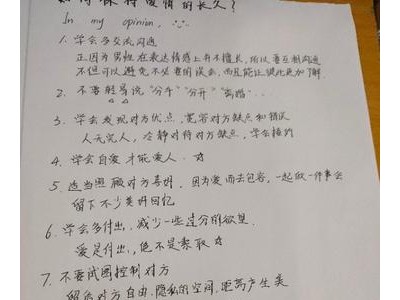 如何保持爱情的长久？
In my opinion.
1. 学会多交流沟通
正因为男性在表达情感上有不擅长，所以要互相沟通
不但可以避免不必要的误会，而且能让彼此更加了解.
2. 不要轻易说“分手”“分开”“离婚”..
3. 学会发现对方优点，宽容对方缺点和错误
人无完人，冷静对待对方缺点，学会接纳
4. 学会自爱才能爱人. ☆
5. 适当照顾对方喜好，因为爱而去包容，一起做一件事会
留下不少美好回忆
6. 学会多付出，减少一些过分的欲望.
爱是付出，绝不是索取 ☆
7. 不要试图控制对方
对方自由.隐私的空间，距离产生美